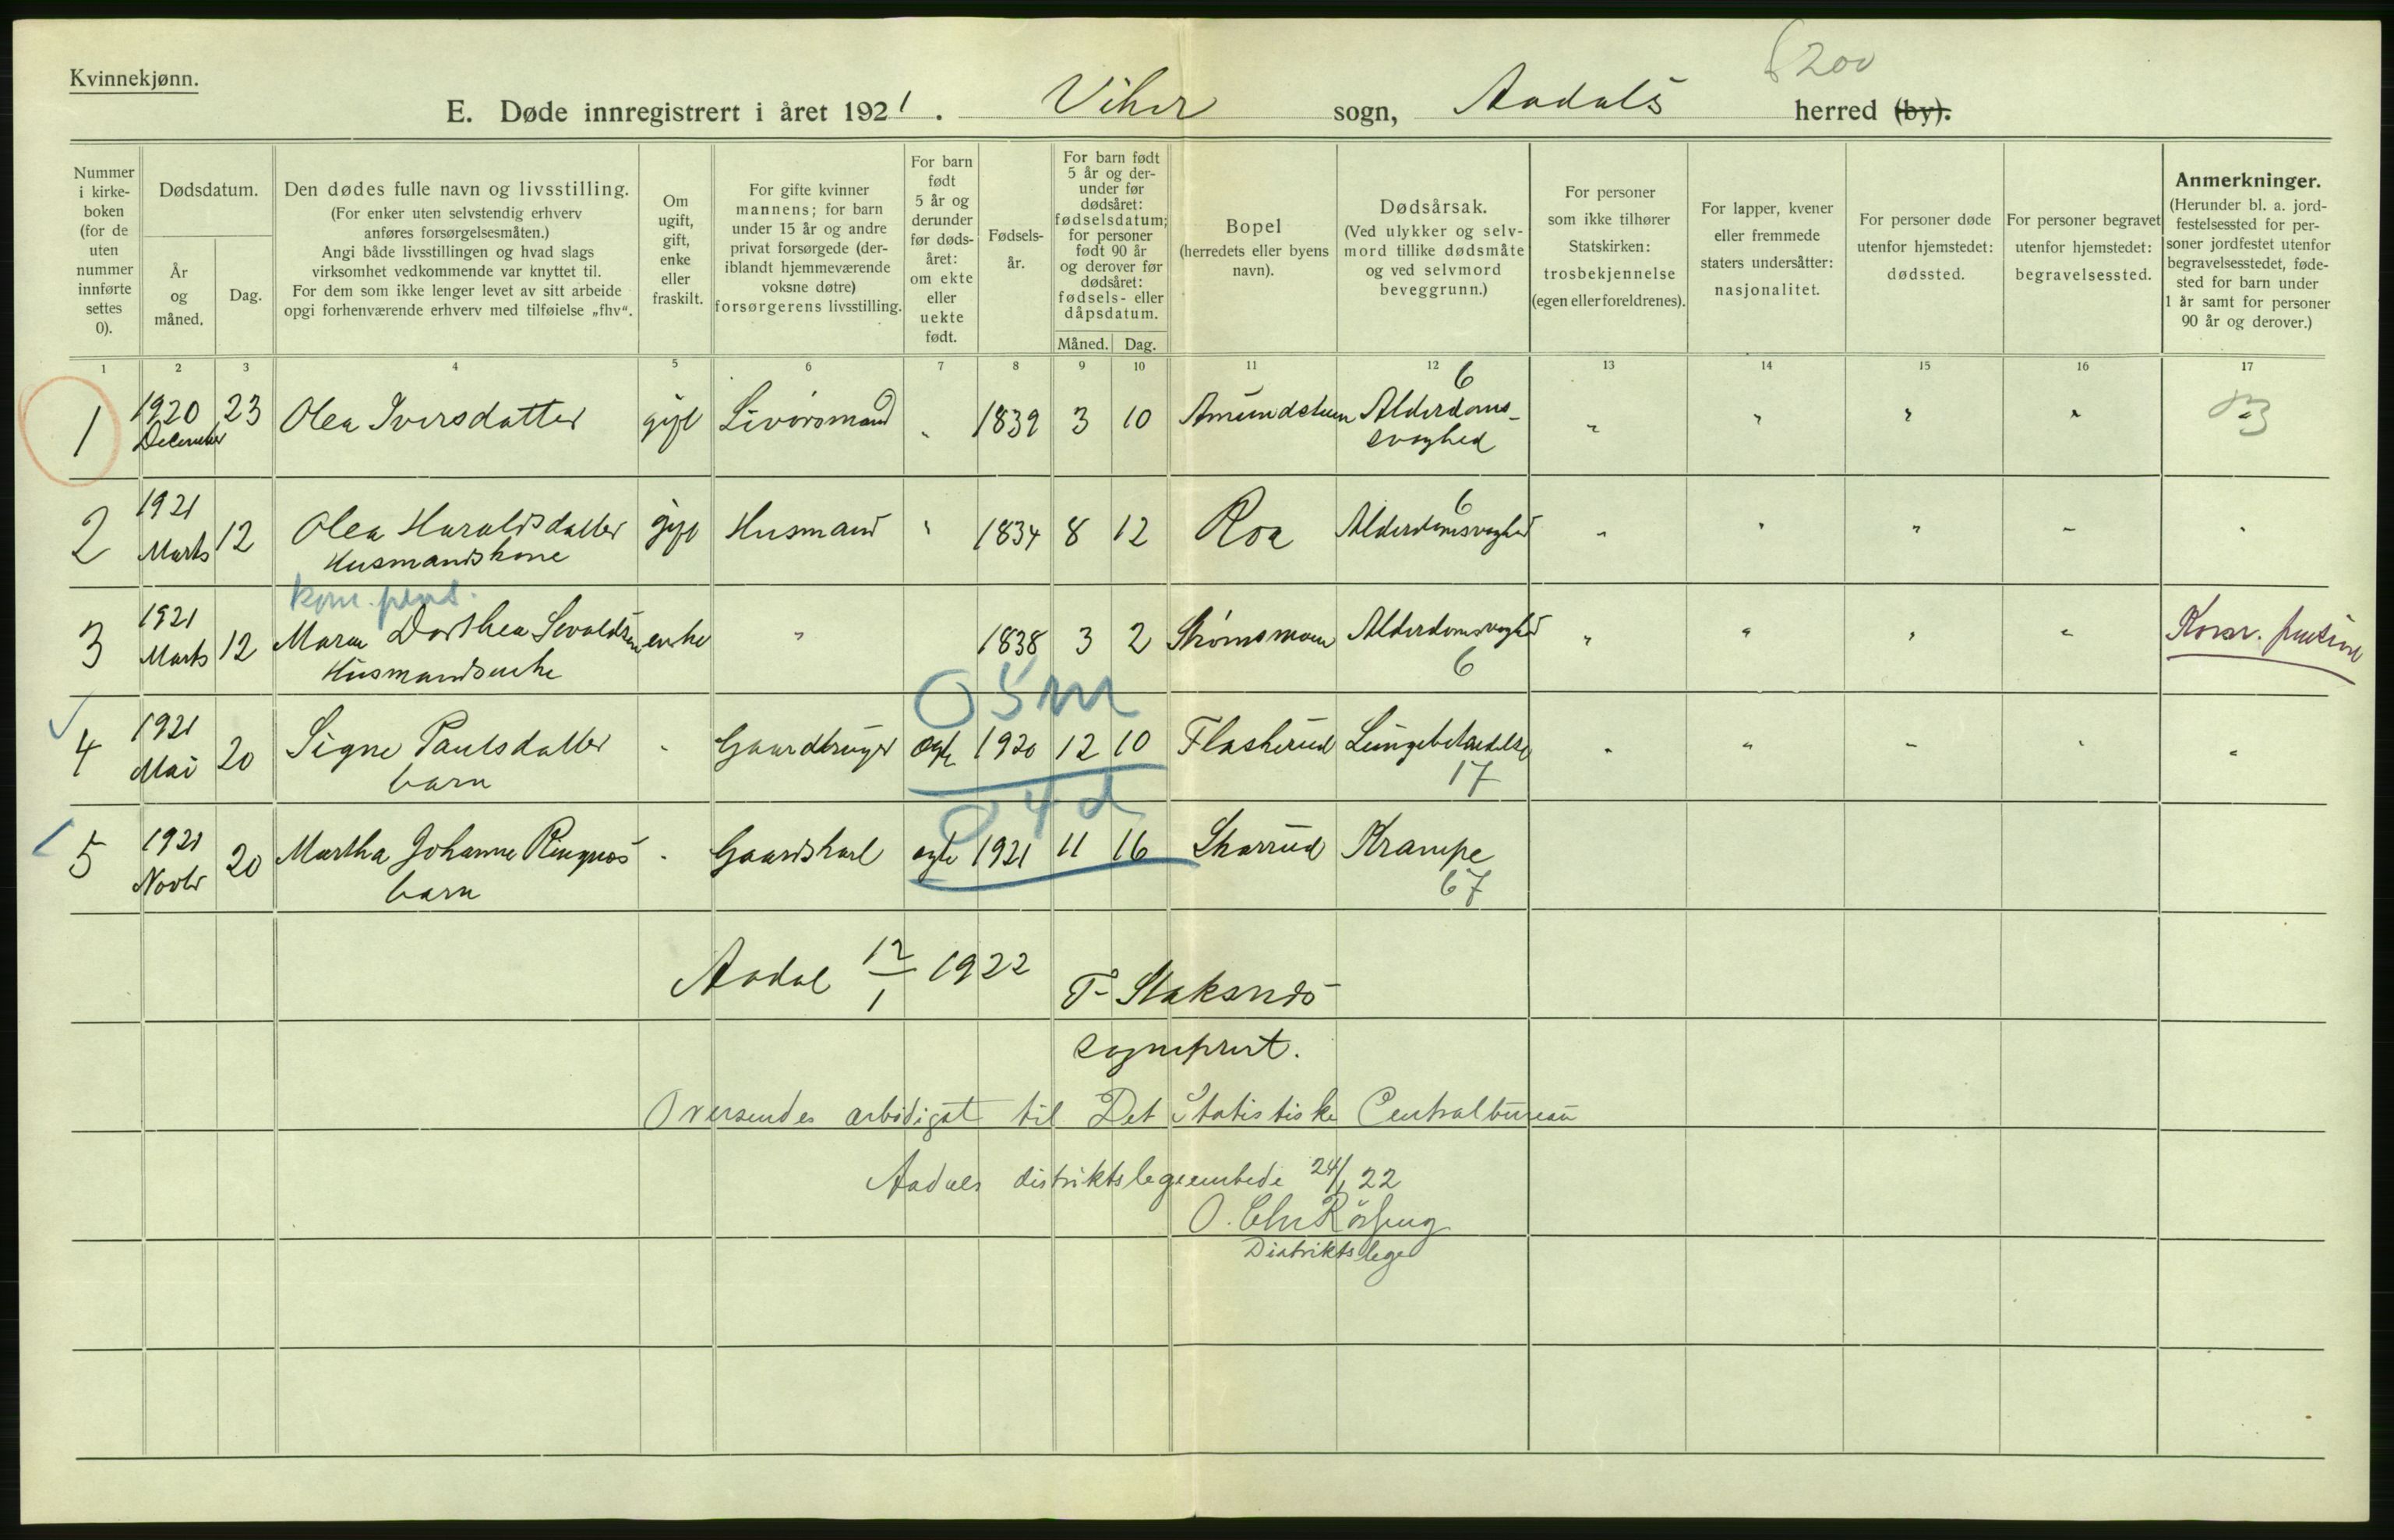 Kvinnekjønn.
6200
E. Døde innregistrert i året 1921. Viker sogn, Aadals herred (by).
Nummer i kirkeboken (for de uten nummer innførte settes 0).
Dødsdatum.
År og måned.
Dag.
Den dødes fulle navn og livsstilling.
(For enker uten selvstendig erhverv anføres forsørgelsesmåten.)
Angi både livsstillingen og hvad slags virksomhet vedkommende var knyttet til.
For dem som ikke lenger levet av sitt arbeide opgi forhenværende erhverv med tilføielse „fhv“.
Om ugift, gift, enke eller fraskilt.
For gifte kvinner mannens; for barn under 15 år og andre privat forsørgede (deriblandt hjemmeværende voksne døtre) forsørgerens livsstilling.
For barn født 5 år og derunder før dødsåret: om ekte eller uekte født.
Fødselsår.
For barn født 5 år og derunder før dødsåret: fødselsdatum; for personer født 90 år og derover før dødsåret: fødsels- eller dåpsdatum.
Måned. Dag.
Bopel
(herredets eller byens navn).
Dødsårsak.
(Ved ulykker og selvmord tillike dødsmåte og ved selvmord beveggrunn.)
For personer som ikke tilhører Statskirken: trosbekjennelse (egen eller foreldrenes).
For lapper, kvener eller fremmede staters undersåtter: nasjonalitet.
For personer døde utenfor hjemstedet: dødssted.
For personer begravet utenfor hjemstedet: begravelsessted.
Anmerkninger.
(Herunder bl. a. jordfestelsessted for personer jordfestet utenfor begravelsesstedet, fødested for barn under 1 år samt for personer 90 år og derover.)
1 2 3 4 5 6 7 8 9 10 11 12 13 14 15 16 17
1 1920 December 23 Olea Iversdatter gift 1839 3 10 Alderdomssvaghed 6
2 1921 Marts 12 Olea Haraldsdatter Husmandskone gift Husmand " 1834 8 12 Roa Alderdomssvaghed 6
kom. pens.
3 1921 Marts 12 Maren Dorthea Husmandsenke enke " 1838 3 2 Strømsmoen Alderdomssvaghed 6
05m
4 1921 Mai 20 Signe Paulsdatter barn Gaardbruger ægte 1920 12 10 Flaskerud Lungebetændelse 17
04d
5 1921 Novbr 20 Martha Johanne Ringnæs barn Gaardskarl ægte 1921 11 16 Skarrud Krampe 67
Aadal 12/1 1922
sogneprest.
Oversendes ærbødigst til Det Statistiske Centralbureau
Aadals distriktslegeembede 24/1 22
Distriktslege